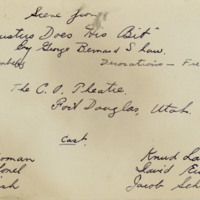 Scene from
ustus Does His Bit"
by George Bernard Shaw.
Decorations – Fre
The C. O. Theatre,
Fort Douglas, Utah.
Cast
oman Knud La
onel David Ei
ish Jacob Sch